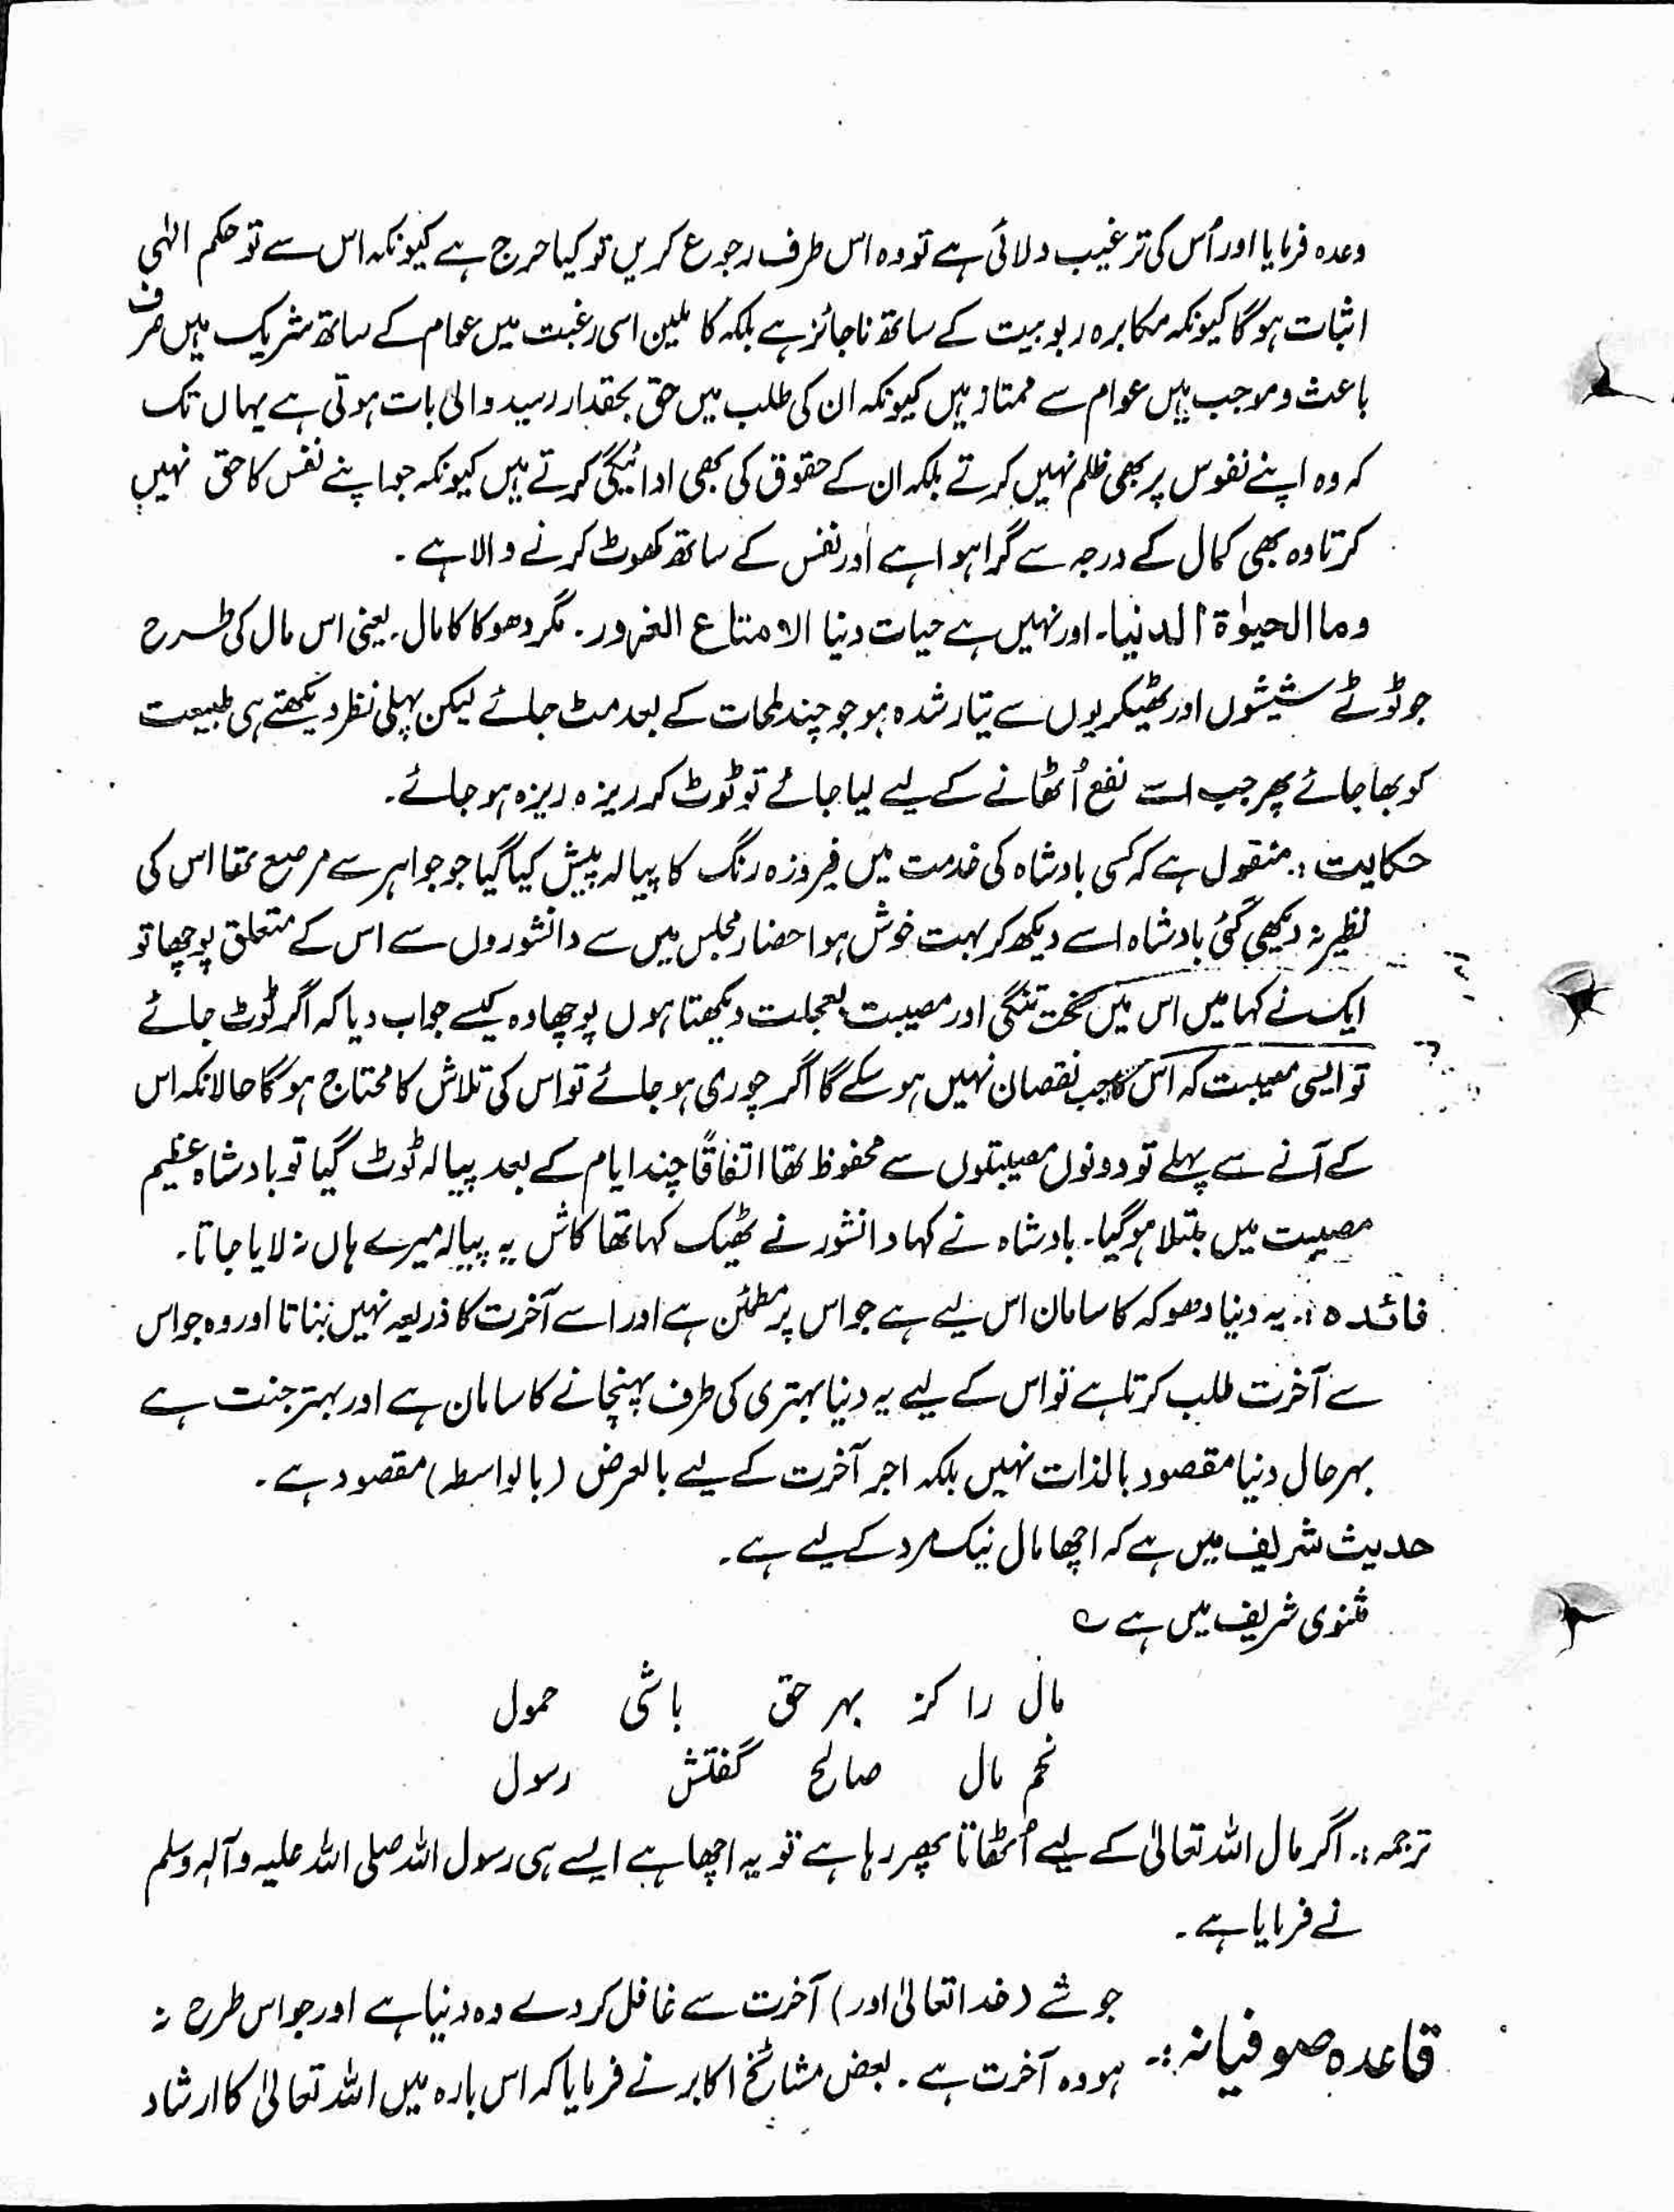 وعدہ فرمایا اور اُس کی ترغیب دلائی ہے تو وہ اس طرف رجوع کریں تو کیا حرج ہے کیونکہ اس سے تو حکم الٰہی
اثبات ہوگا کیونکہ مکابرہ ربوبیت کے ساتھ ناجائز ہے بلکہ کاملین اسی رغبت میں عوام کے ساتھ شریک ہیں صرف
باعث و موجب ہیں عوام سے ممتاز ہیں کیونکہ ان کی طلب میں حق بحقدار رسید والی بات ہوتی ہے یہاں تک
کہ وہ اپنے نفوس پر بھی ظلم نہیں کرتے بلکہ ان کے حقوق کی بھی ادائیگی کرتے ہیں کیونکہ جو اپنے نفس کا حق نہیں
کرتا وہ بھی کمال کے درجہ سے گرا ہوا ہے اور نفس کے ساتھ کھوٹ کرنے والا ہے ۔
وما الحیوٰۃ الدنیا۔ اور نہیں ہے حیات دنیا الا متاع الغرور ۔ مگر دھوکا کا مال ۔ یعنی اس مال کی طرح
جو ٹوٹے شیشوں اور ٹھیکریوں سے تیار شدہ ہو جو چند لمحات کے بعد مٹ جائے لیکن پہلی نظر دیکھتے ہی طبیعت
کو بھا جائے پھر جب اسے نفع اُٹھانے کے لیے لیا جائے تو ٹوٹ کر ریزہ ریزہ ہو جائے ۔
حکایت :۔ منقول ہے کہ کسی بادشاہ کی خدمت میں فیروزہ رنگ کا پیالہ پیش کیا گیا جو جواہر سے مرصع تھا اس کی
نظیر نہ دیکھی گئی بادشاہ اسے دیکھ کر بہت خوش ہوا حضار مجلس میں سے دانشوروں سے اس کے متعلق پوچھا تو
ایک نے کہا میں اس میں سخت تنگی اور مصیبت بعجلت دیکھتا ہوں پوچھا وہ کیسے جواب دیا کہ اگر ٹوٹ جائے
تو ایسی مصیبت کہ اس کا نقصان نہیں ہو سکے گا اگر چوری ہو جائے تو اس کی تلاش کا محتاج ہو گا حالانکہ اس
کے آنے سے پہلے تو دونوں مصیبتوں سے محفوظ تھا اتفاقاً چند ایام کے بعد پیالہ ٹوٹ گیا تو بادشاہ عظیم
مصیبت میں مبتلا ہوگیا۔ بادشاہ نے کہا دانشور نے ٹھیک کہا تھا کاش یہ پیالہ میرے ہاں نہ لایا جاتا ۔
فائدہ :۔ یہ دنیا دھوکہ کا سامان اس لیے ہے جو اس پر مطمئن ہے اور اسے آخرت کا ذریعہ نہیں بناتا اور وہ جو اس
سے آخرت طلب کرتا ہے تو اس کے لیے یہ دنیا بہتری کی طرف پہنچانے کا سامان ہے اور بہتر جنت ہے
بہرحال دنیا مقصود بالذات نہیں بلکہ اجر آخرت کے لیے بالعرض (بالواسطہ) مقصود ہے ۔
حدیث شریف میں ہے کہ اچھا مال نیک مرد کے لیے ہے ۔
مثنوی شریف میں ہے ؎
مال را کز بہر حق باشی حمول
نعم مال صالح گفتش رسول
ترجمہ :۔ اگر مال اللہ تعالیٰ کے لیے اُٹھاتا پھر رہا ہے تو یہ اچھا ہے ایسے ہی رسول اللہ صلی اللہ علیہ وآلہ وسلم
نے فرمایا ہے ۔
قاعدہ صوفیانہ :۔ جو شے (خدا تعالیٰ اور) آخرت سے غافل کر دے وہ دنیا ہے اور جو اس طرح نہ
ہو وہ آخرت ہے ۔ بعض مشائخ اکابر نے فرمایا کہ اس بارہ میں اللہ تعالیٰ کا ارشاد